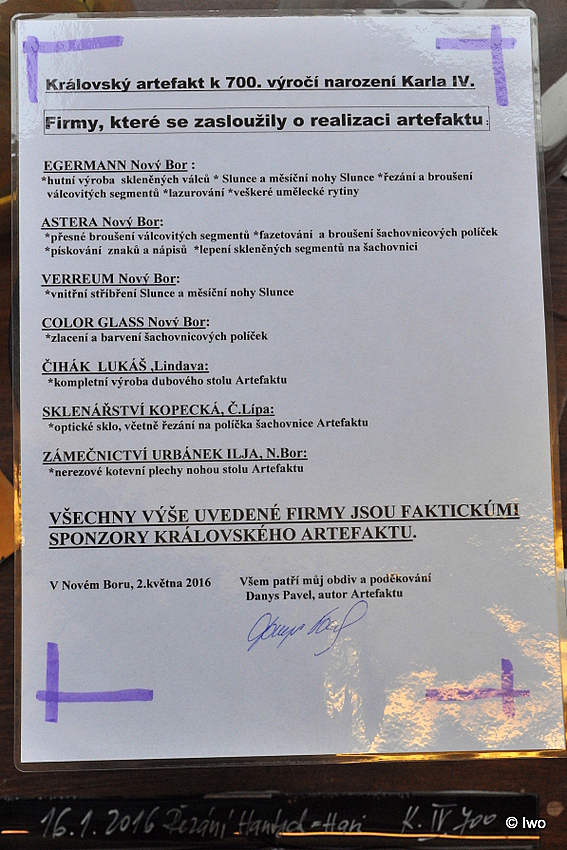 Královský artefakt k 700. výročí narození Karla IV.
Firmy, které se zasloužily o realizaci artefaktu :
EGERMANN Nový Bor :
*hutní výroba skleněných válců * Slunce a měsíční nohy Slunce *řezání a broušení
válcovitých segmentů *lazurování *veškeré umělecké rytiny
ASTERA Nový Bor:
*přesné broušení válcovitých segmentů *fazetování a broušení šachovnicových políček
*pískování znaků a nápisů *lepení skleněných segmentů na šachovnici
VERREUM Nový Bor:
*vnitřní stříbření Slunce a měsíční nohy Slunce
COLOR GLASS Nový Bor:
*zlacení a barvení šachovnicových políček
ČIHÁK LUKÁŠ ,Lindava:
*kompletní výroba dubového stolu Artefaktu
SKLENÁŘSTVÍ KOPECKÁ, Č.Lípa:
*optické sklo, včetně řezání na políčka šachovnice Artefaktu
ZÁMEČNICTVÍ URBÁNEK ILJA, N.Bor:
*nerezové kotevní plechy nohou stolu Artefaktu
VŠECHNY VÝŠE UVEDENÉ FIRMY JSOU FAKTICKÚMI
SPONZORY KRÁLOVSKÉHO ARTEFAKTU.
V Novém Boru, 2.května 2016 Všem patří můj obdiv a poděkování
Danys Pavel, autor Artefaktu
16.1.2016 Řezání K. IV. 700
© Iwo